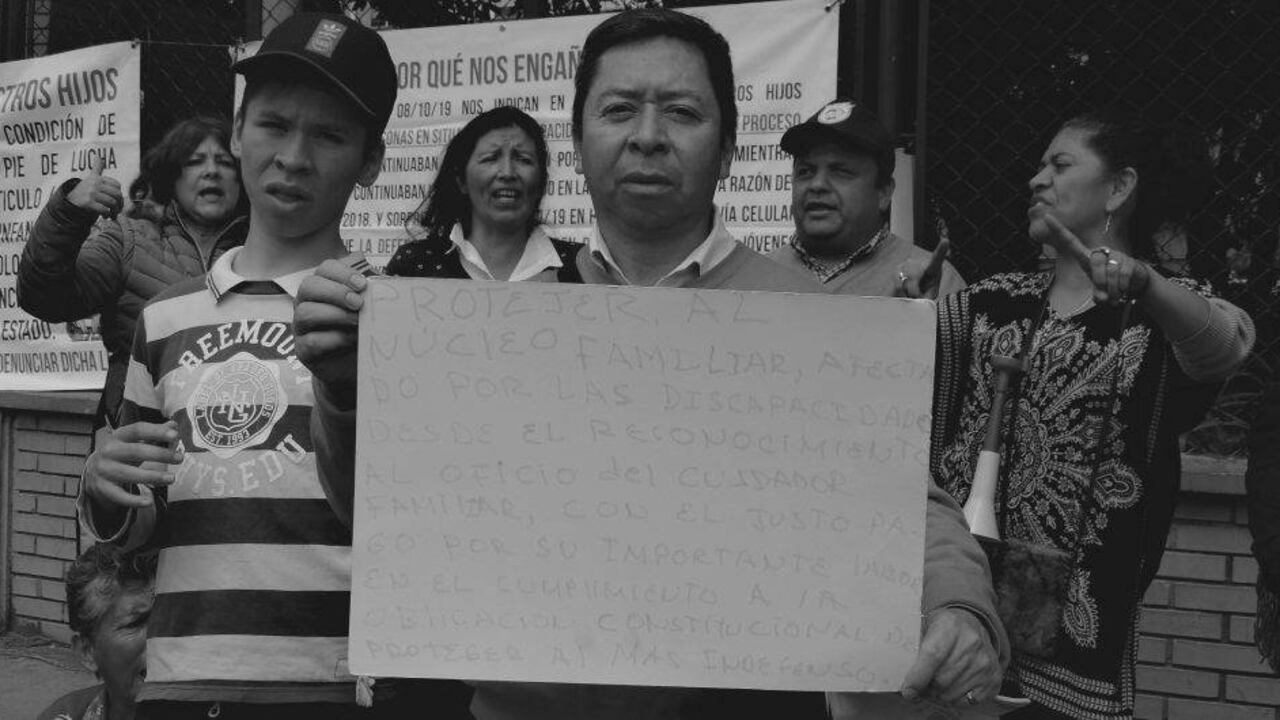 STROS HIJOS
CONDICIÓN DE
PIE DE LUCHA
TICULO
ESTADO.
DENUNCIAR DICHA L
OR QUÉ NOS ENGAÑ
08/10/19 NOS INDICAN EN
OS HIJOS
ONAS EN SITU
PROCESO
CONTINUABAN
MIENTRA
CONTINUABAN
EN LO
A RAZÓN DE
2018. Y
/19 EN
VÍA CELULAR
LA DEFE
JÓVENES
FREEMOUNT
EST 1993
NYS.EDU
PROTEJER, AL
NÚCLEO FAMILIAR, AFECTA
DO POR LAS DISCAPACIDADE
DESDE EL RECONOCIMIENTO
AL OFICIO del CUIDADOR
FAMILIAR, CON EL JUSTO PA-
GO POR SU IMPORTANTE LABOR
EN EL CUMPLIMIENTO A LA
OBLIGACION CONSTITUCIONAL DE
PROTEGER AL MAS INDEFENSO.